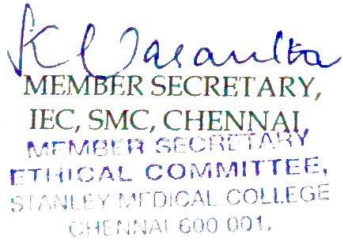 K Vasantha
MEMBER SECRETARY,
IEC, SMC, CHENNAI
MEMBER SECRETARY
ETHICAL COMMITTEE,
STANLEY MEDICAL COLLEGE
CHENNAI 600 001.